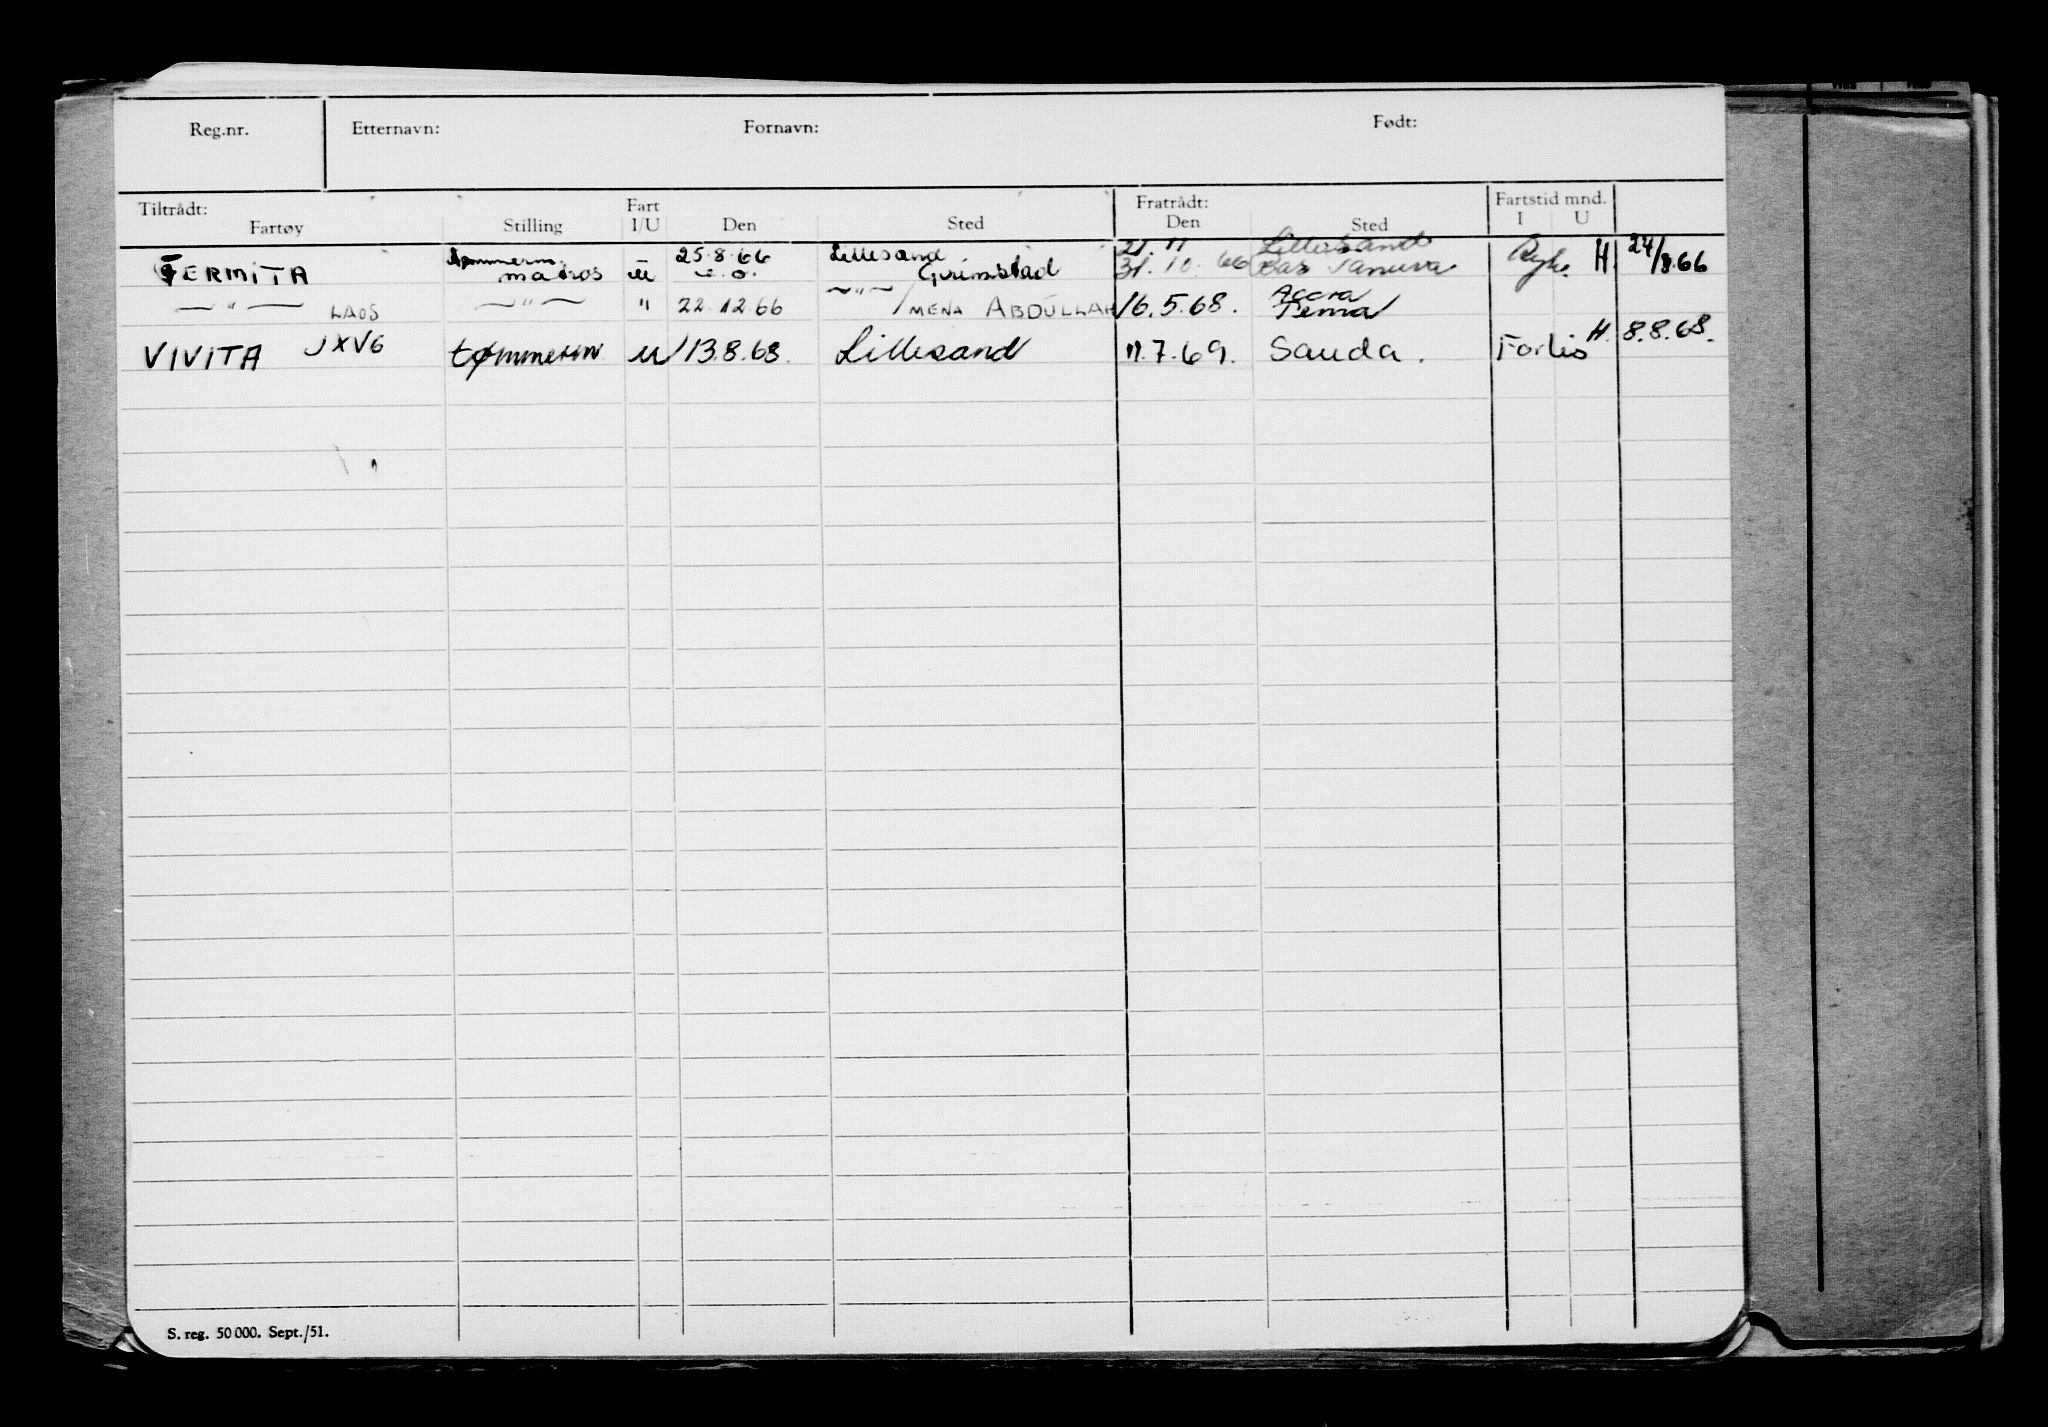 Reg.nr. Etternavn: Fornavn: Født:
Tiltrådt: Fartøy Stilling Fart I/U Den Sted Fratrådt: Den Sted Fartstid mnd. I U
tømmerm. 25.8.66 Lillesand 21. 11 Lillesand
FERMITA matros u Grimstad 31. 10. 66 H 24/8.66
— " — LAOS — " — " 22.12.66 — " — / MENA ABDULLAH 16.5.68. Accra Tema
VIVITA JXVG tømmerm u 13.8.68. Lillesand 11.7.69. Sauda. H. 8.8.68.
S. reg. 50 000. Sept./51.